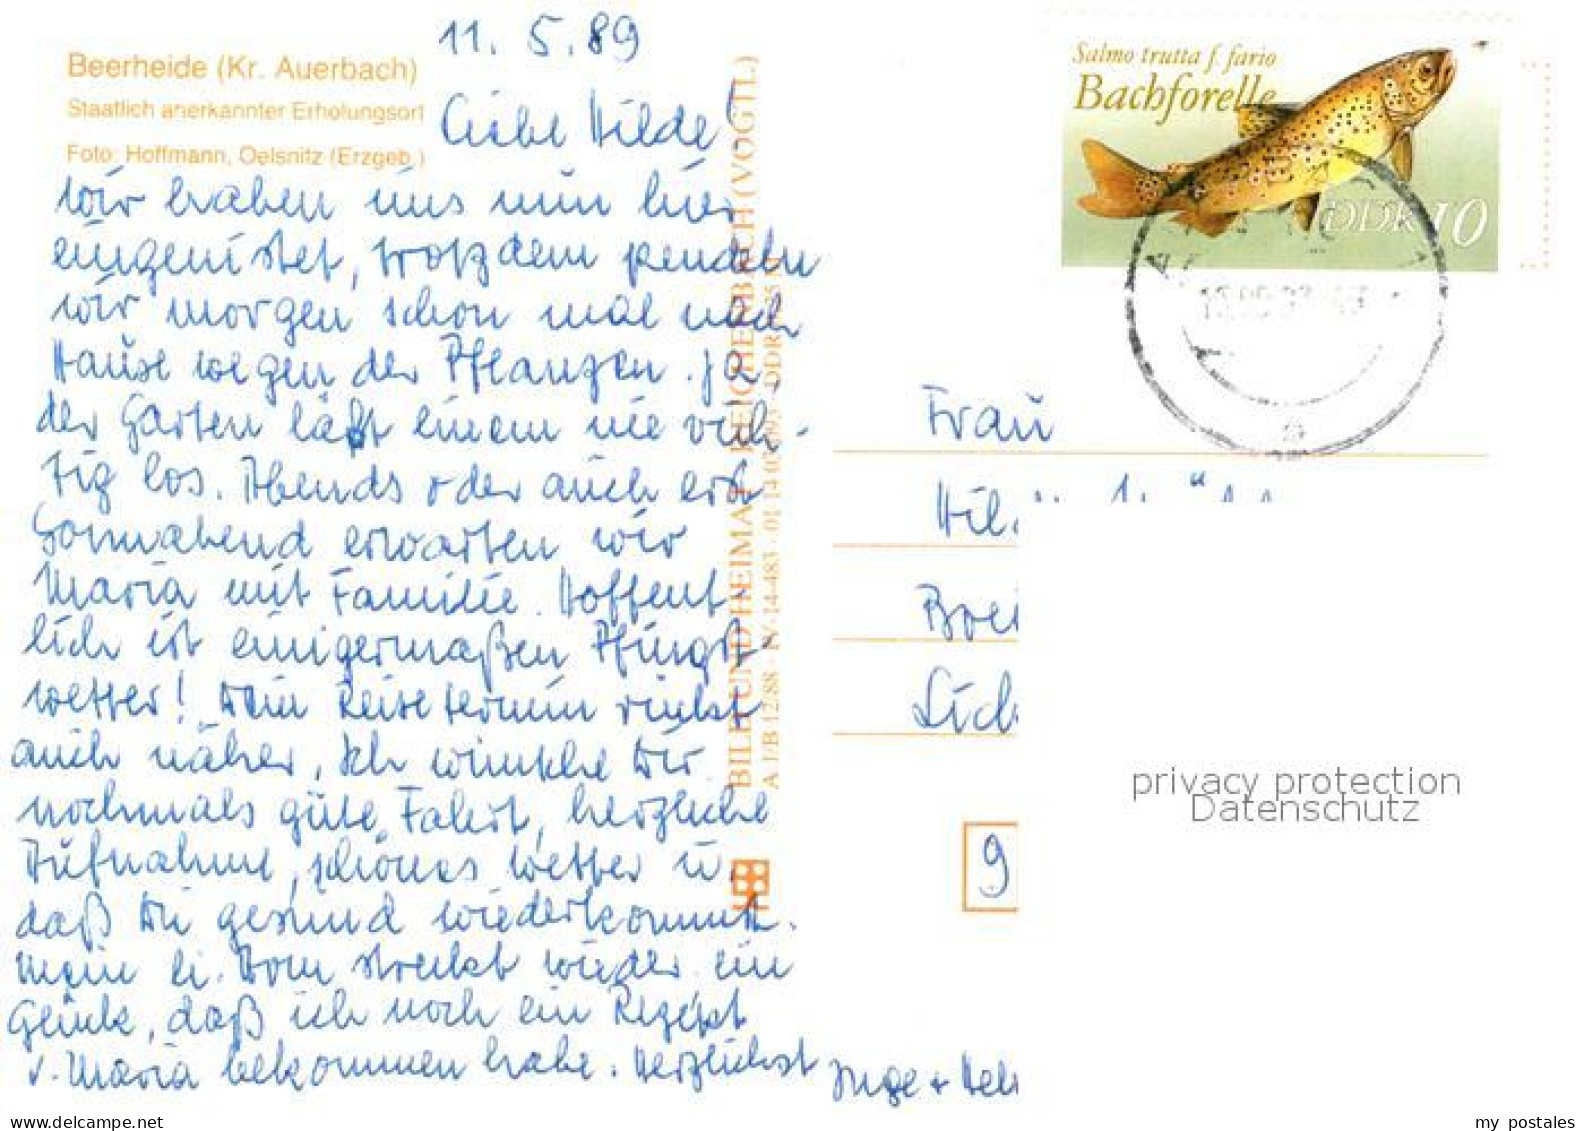 11. 5. 89
Beerheide (Kr. Auerbach)
Staatlich anerkannter Erholungsort
Foto: Hoffmann, Oelsnitz (Erzgeb.)
Liebe Hilde!
wir haben uns nun hier
eingenistet, trotzdem pendeln
wir morgen schon mal nach
Hause wegen der Pflanzen. ja,
der Garten läßt einem nie rich-
tig los. Abends oder auch erst
Sonnabend erwarten wir
Maria mit Familie. Hoffent-
lich ist einigermaßen Pfingst-
wetter! Dein Reisetermin rückt
auch näher. Ich wünsche Dir
nochmals gute Fahrt, herzliche
Aufnahme, schönes Wetter u.
daß Du gesund wiederkommst.
Mein li. Arm streikt wieder. ein
Glück, daß ich noch ein Rezept
v. Maria bekommen habe. Herzlichst Inge + Hel
BILD UND HEIMAT REICHENBACH (VOGTL.)
A 1/B 12/88 · IV-14-483 · 01 14 0 093 · DDR
Salmo trutta f. fario
Bachforelle
DDR 10
Frau
Hil
Brei
Lich
9
privacy protection
Datenschutz
www.delcampe.net
my postales